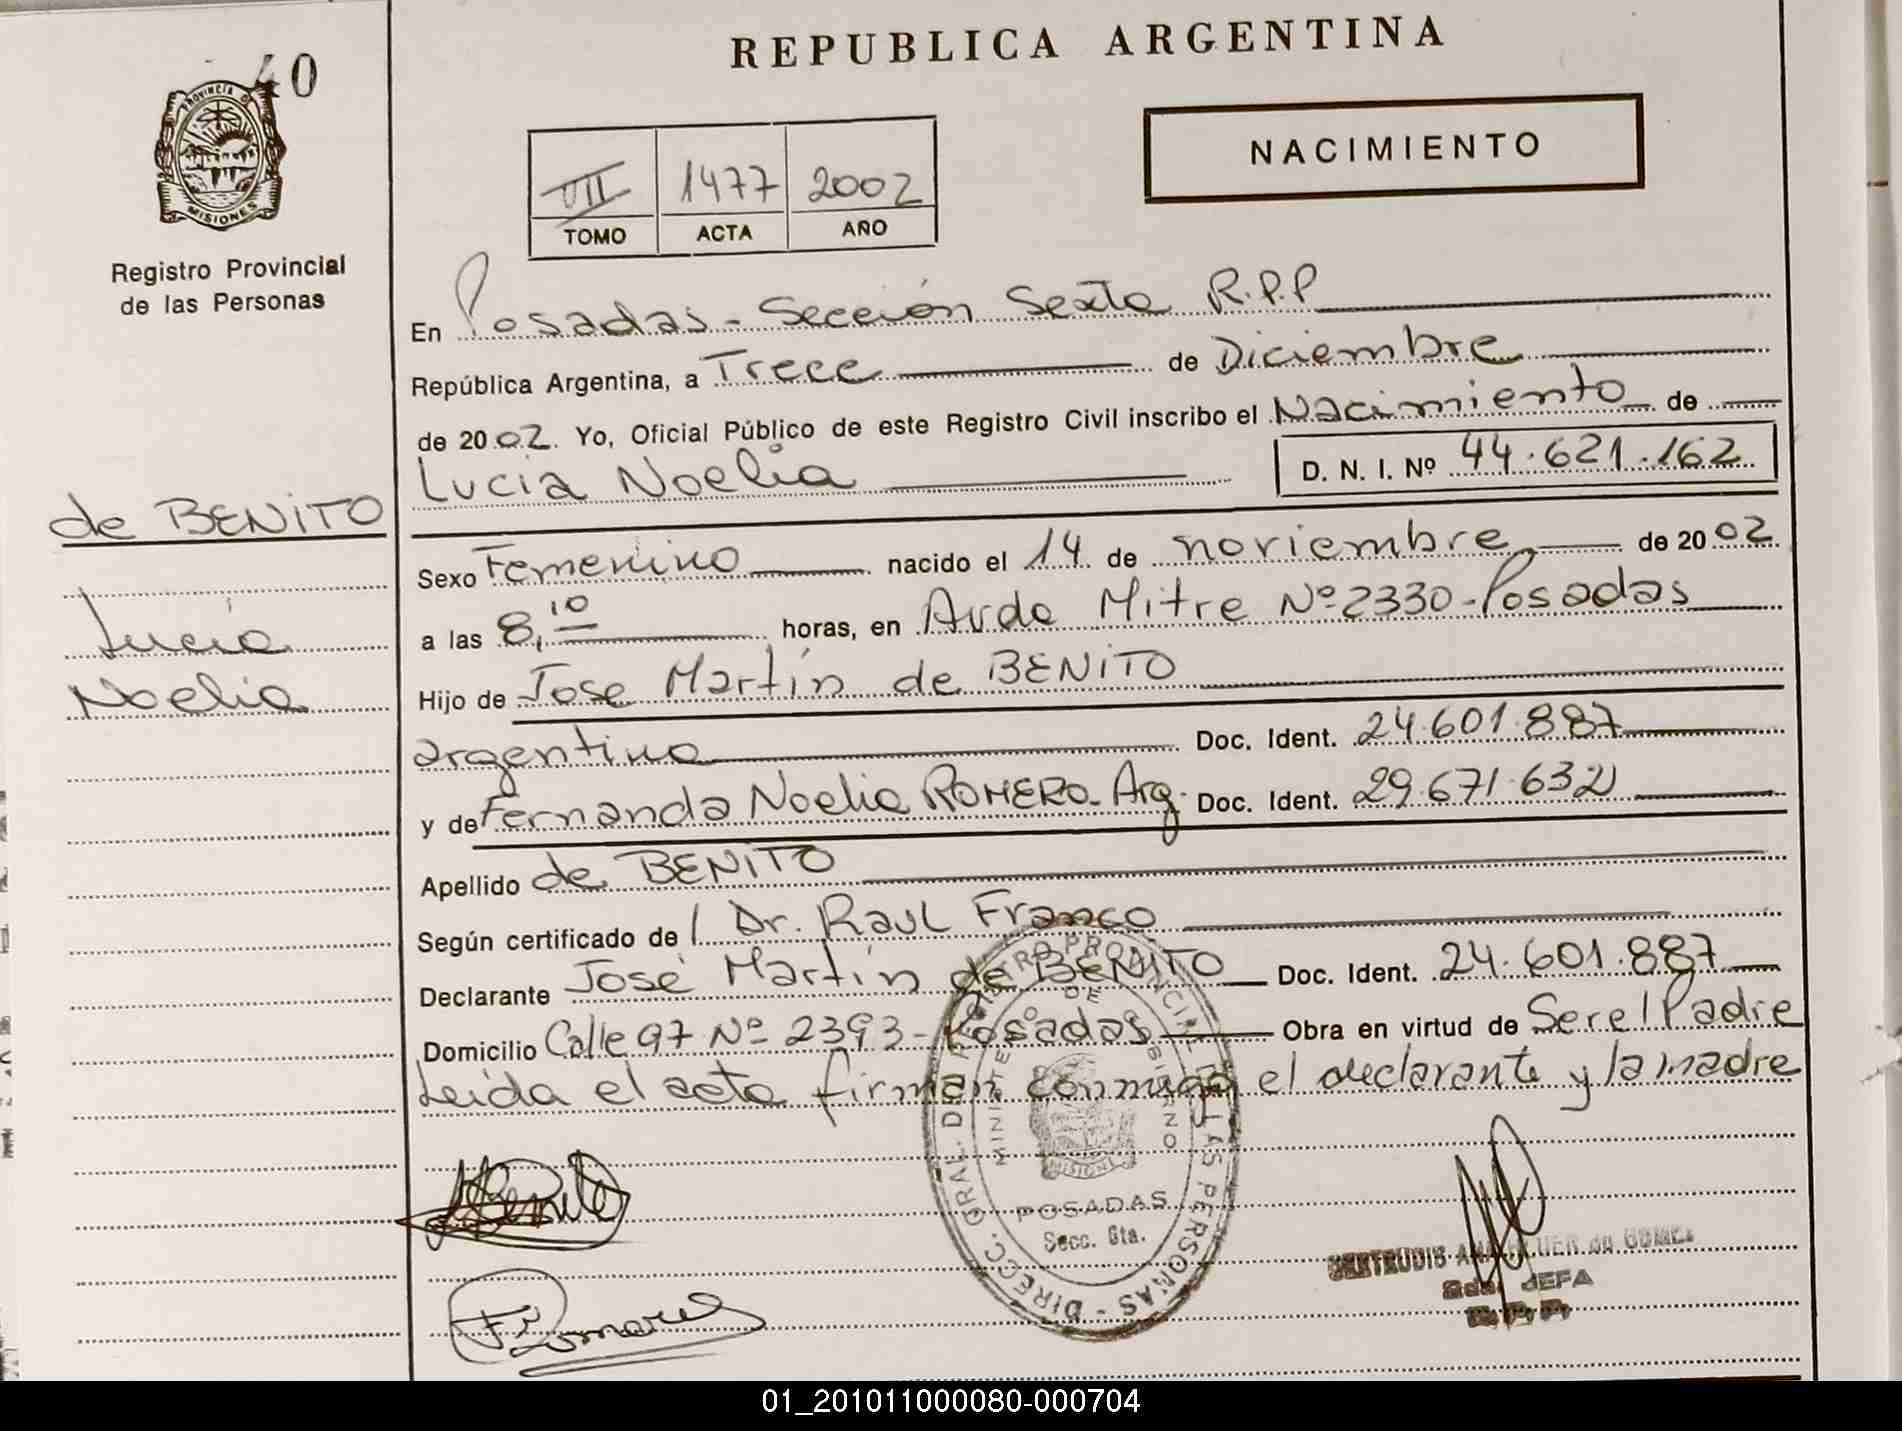 40
PROVINCIA DE
MISIONES
Registro Provincial
de las Personas
REPUBLICA ARGENTINA
NACIMIENTO
VII 1477 2002
TOMO ACTA AÑO
En Posadas - Sección Sexta R.P.P
República Argentina, a Trece de Diciembre
de 2002. Yo, Oficial Público de este Registro Civil inscribo el Nacimiento de
Lucia Noelia D. N. I. Nº 44.621.162
de BENITO
Lucia
Noelia
Sexo Femenino nacido el 14 de noviembre de 2002
a las 8,10 horas, en Avda Mitre Nº 2330 - Posadas
Hijo de Jose Martín de BENITO
argentino Doc. Ident. 24.601.887
y de Fernanda Noelia ROMERO - Arg. Doc. Ident. 29.671.632
Apellido de BENITO
Según certificado de / Dr. Raul Franco
Declarante José Martín de BENITO Doc. Ident. 24.601.887
Domicilio Calle 97 Nº 2393 - Posadas Obra en virtud de Ser el Padre
Leida el acta firman conmigo el declarante y la madre
DIRECC. GRAL. DEL REGISTRO PROVINCIAL DE LAS PERSONAS
MINISTERIO DE GOBIERNO
MISIONES
POSADAS
Secc. 6ta.
GERTRUDIS de GOMEZ
JEFA
R.P.P.
01_201011000080-000704